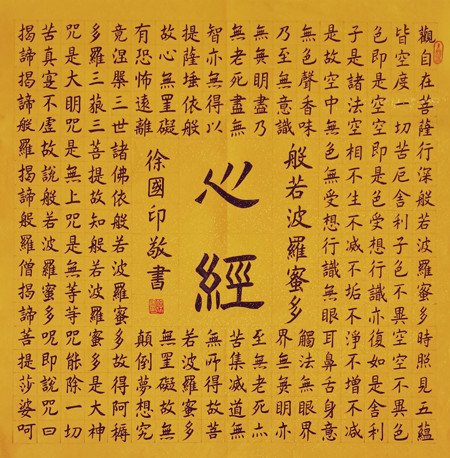 觀自在菩薩行深般若波羅蜜多時照見五蘊
皆空度一切苦厄舍利子色不異空空不異色
色即是空空即是色受想行識亦復如是舍利
子是諸法空相不生不滅不垢不淨不增不減
是故空中無色無受想行識無眼耳鼻舌身意
無色聲香味
觸法無眼界
乃至無意識
界無無明亦
無無明盡乃
至無老死亦
無老死盡無
苦集滅道無
智亦無得以
無所得故菩
提薩埵依般
若波羅蜜多
故心無罣礙
無罣礙故無
有恐怖遠離
顛倒夢想究
竟涅槃三世諸佛依般若波羅蜜多故得阿耨
多羅三藐三菩提故知般若波羅蜜多是大神
咒是大明咒是無上咒是無等等咒能除一切
苦真實不虛故說般若波羅蜜多呪即說咒曰
揭諦揭諦般羅揭諦般羅僧揭諦菩提莎婆呵
般若波羅蜜多
心經
徐國印敬書